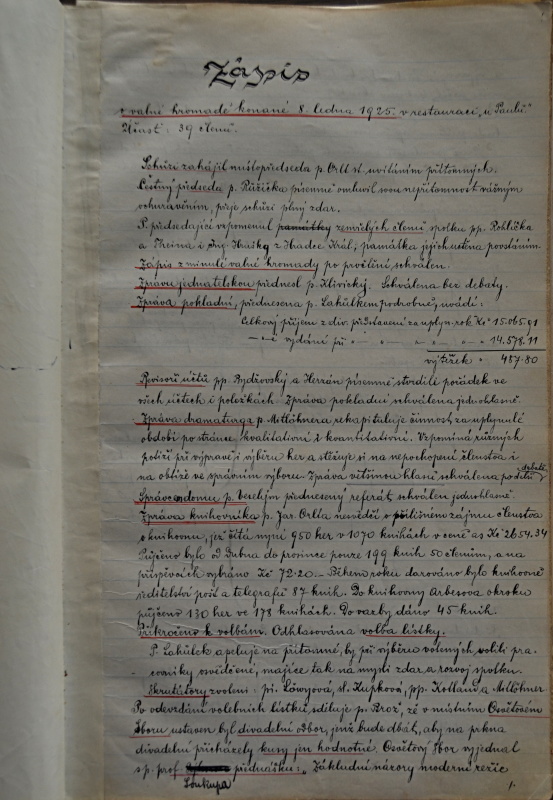 Zápis
o valné hromadě konané 8. ledna 1925. v restauraci „u Paulů"
Účast: 39 členů.
Schůzi zahájil místopředseda p. Orlt st. uvítáním přítomných.
Čestný předseda p. Růžička písemně omluvil svou nepřítomnost vážným
ochuravěním, přeje schůzi plný zdar.
P. předsedající vzpomenul památky zemřelých členů spolku pp. Rohlíčka
a Theina i Ing. z Hradce Král., památka jejich uctěna povstáním.
Zápis z minulé valné hromady po přečtení schválen.
Zprávu jednatelskou přednesl p. Křivický. Schválena bez debaty.
Zpráva pokladní, přednesena p. Lahůlkem podrobně, uvádí:
Celkový příjem z div. představení za uplyn. rok Kč 15.065.91
–"– vydání při " – " – " – " 14.578.11
výtěžek " 487.80
Revisoři účtů pp. Bydžovský a Herrán písemně stvrdili pořádek ve
všech účtech i položkách. Zpráva pokladní schválena jednohlasně.
Zpráva dramaturga p. Mettöhnera rekapituluje činnost za uplynulé
období po stránce kvalitativní i kvantitativní. Vzpomíná různých
potíží při výpravě i výběru her a stěžuje si na nepochopení členstva i
na obtíže ve správním výboru. Zpráva většinou hlasů schválena po delší debatě
Správce domu p. přednesený referát, schválen jednohlasně.
Zpráva knihovníka p. Jar. Orlta nesvědčí o přílišném zájmu členstva
o knihovnu, jež čítá nyní 950 her v 1070 knihách v ceně as Kč 2654.34
Půjčeno bylo od dubna do prosince pouze 199 knih 50 členům, a na
příspěvcích vybráno Kč 72.20. – Během roku darováno bylo knihovně
ředitelství pošt a telegrafů 87 knih. Do knihovny Arbesova okrsku
půjčeno 130 her ve 178 knihách. Do vazby dáno 45 knih.
Přikročeno k volbám. Odhlasována volba lístky.
P. Lahůlek apeluje na přítomné, by při výběru volených volili pra-
covníky osvědčené, majíce tak na mysli zdar a rozvoj spolku.
Skrutátory zvoleni: pí. Löwyová, sl. Zupková, pp. Kotland a Mettöhner
Po odevzdání volebních lístků sděluje p. Brož, že v místním Osvětovém
sboru ustaven byl divadelní odbor, jenž bude dbát, aby na prkna
divadelní přicházely kusy jen hodnotné. Osvětový sbor vyjednal
s p. prof. přednášku: „Základní názory moderní režie
Soukupa
1.